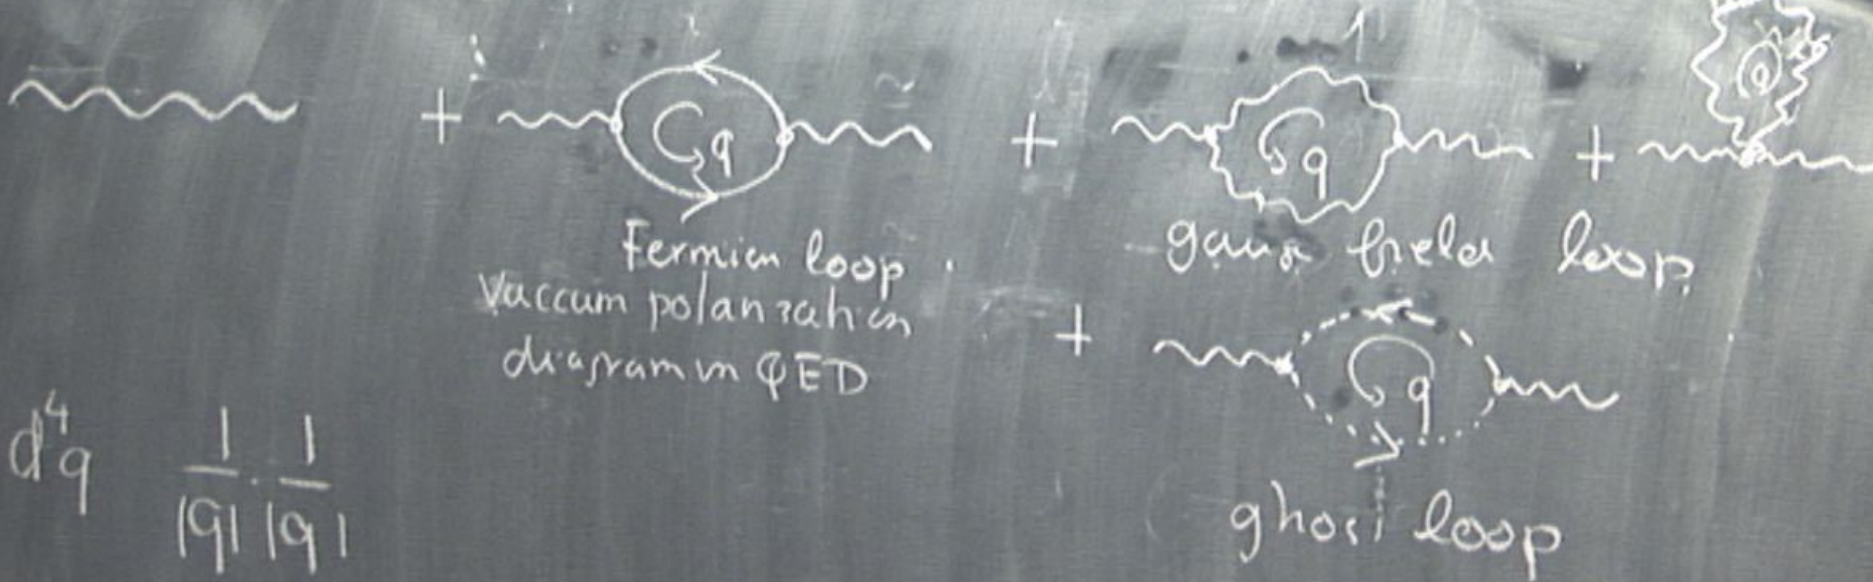 + q + q + q
Fermion loop
Vaccum polarization
diagram in QED
gauge field loop
+ q
ghost loop
d⁴q 1/|q| · 1/|q|